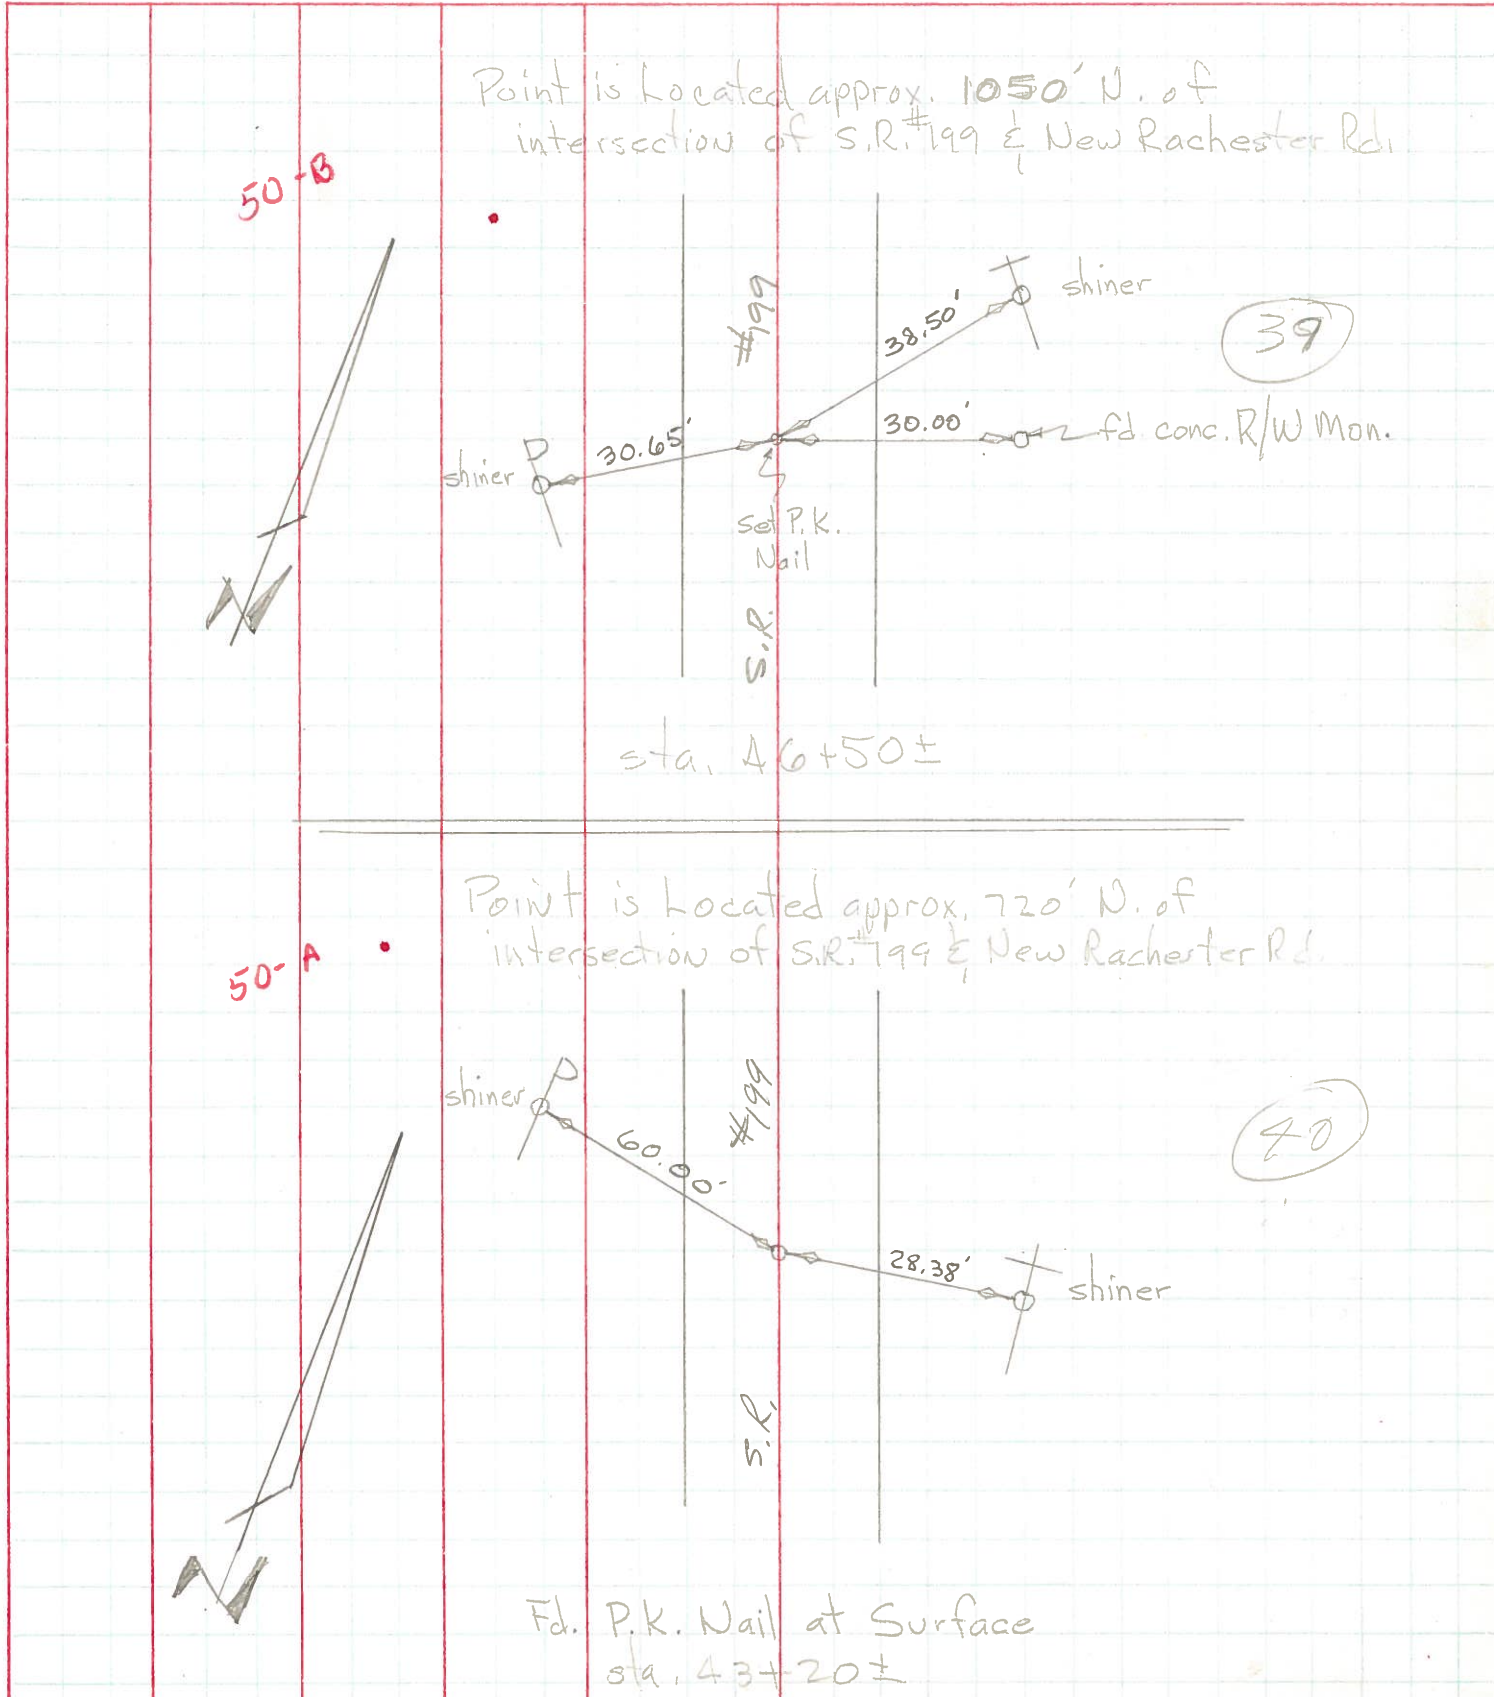 Point is Located approx. 1050' N. of
intersection of S.R. #199 & New Rachester Rd.
50-B
#199
38.50'
shiner
39
30.65'
30.00'
fd conc. R/W Mon.
shiner
set P.K.
Nail
S.R.
N
sta. 46+50±
Point is Located approx. 720' N. of
intersection of S.R. #199 & New Rachester Rd.
50-A
shiner
#199
60.00'
40
28.38'
shiner
S.R.
N
Fd. P.K. Nail at Surface
sta. 43+20±